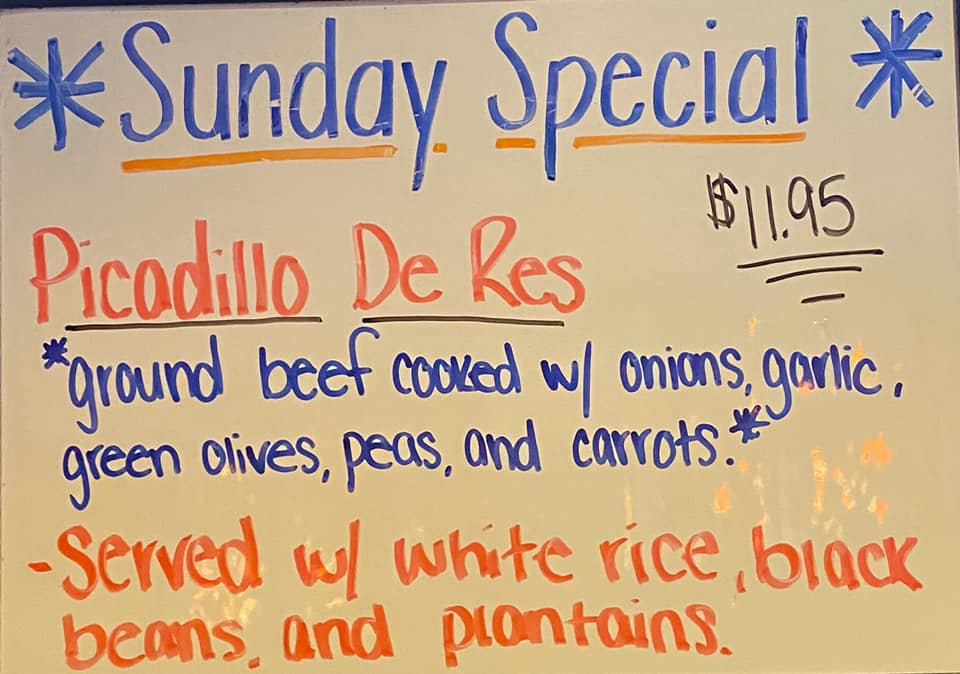 *Sunday Special*
$11.95
Picadillo De Res
*ground beef cooked w/ onions, garlic,
green olives, peas, and carrots.*
-Served w/ white rice, black
beans, and plantains.